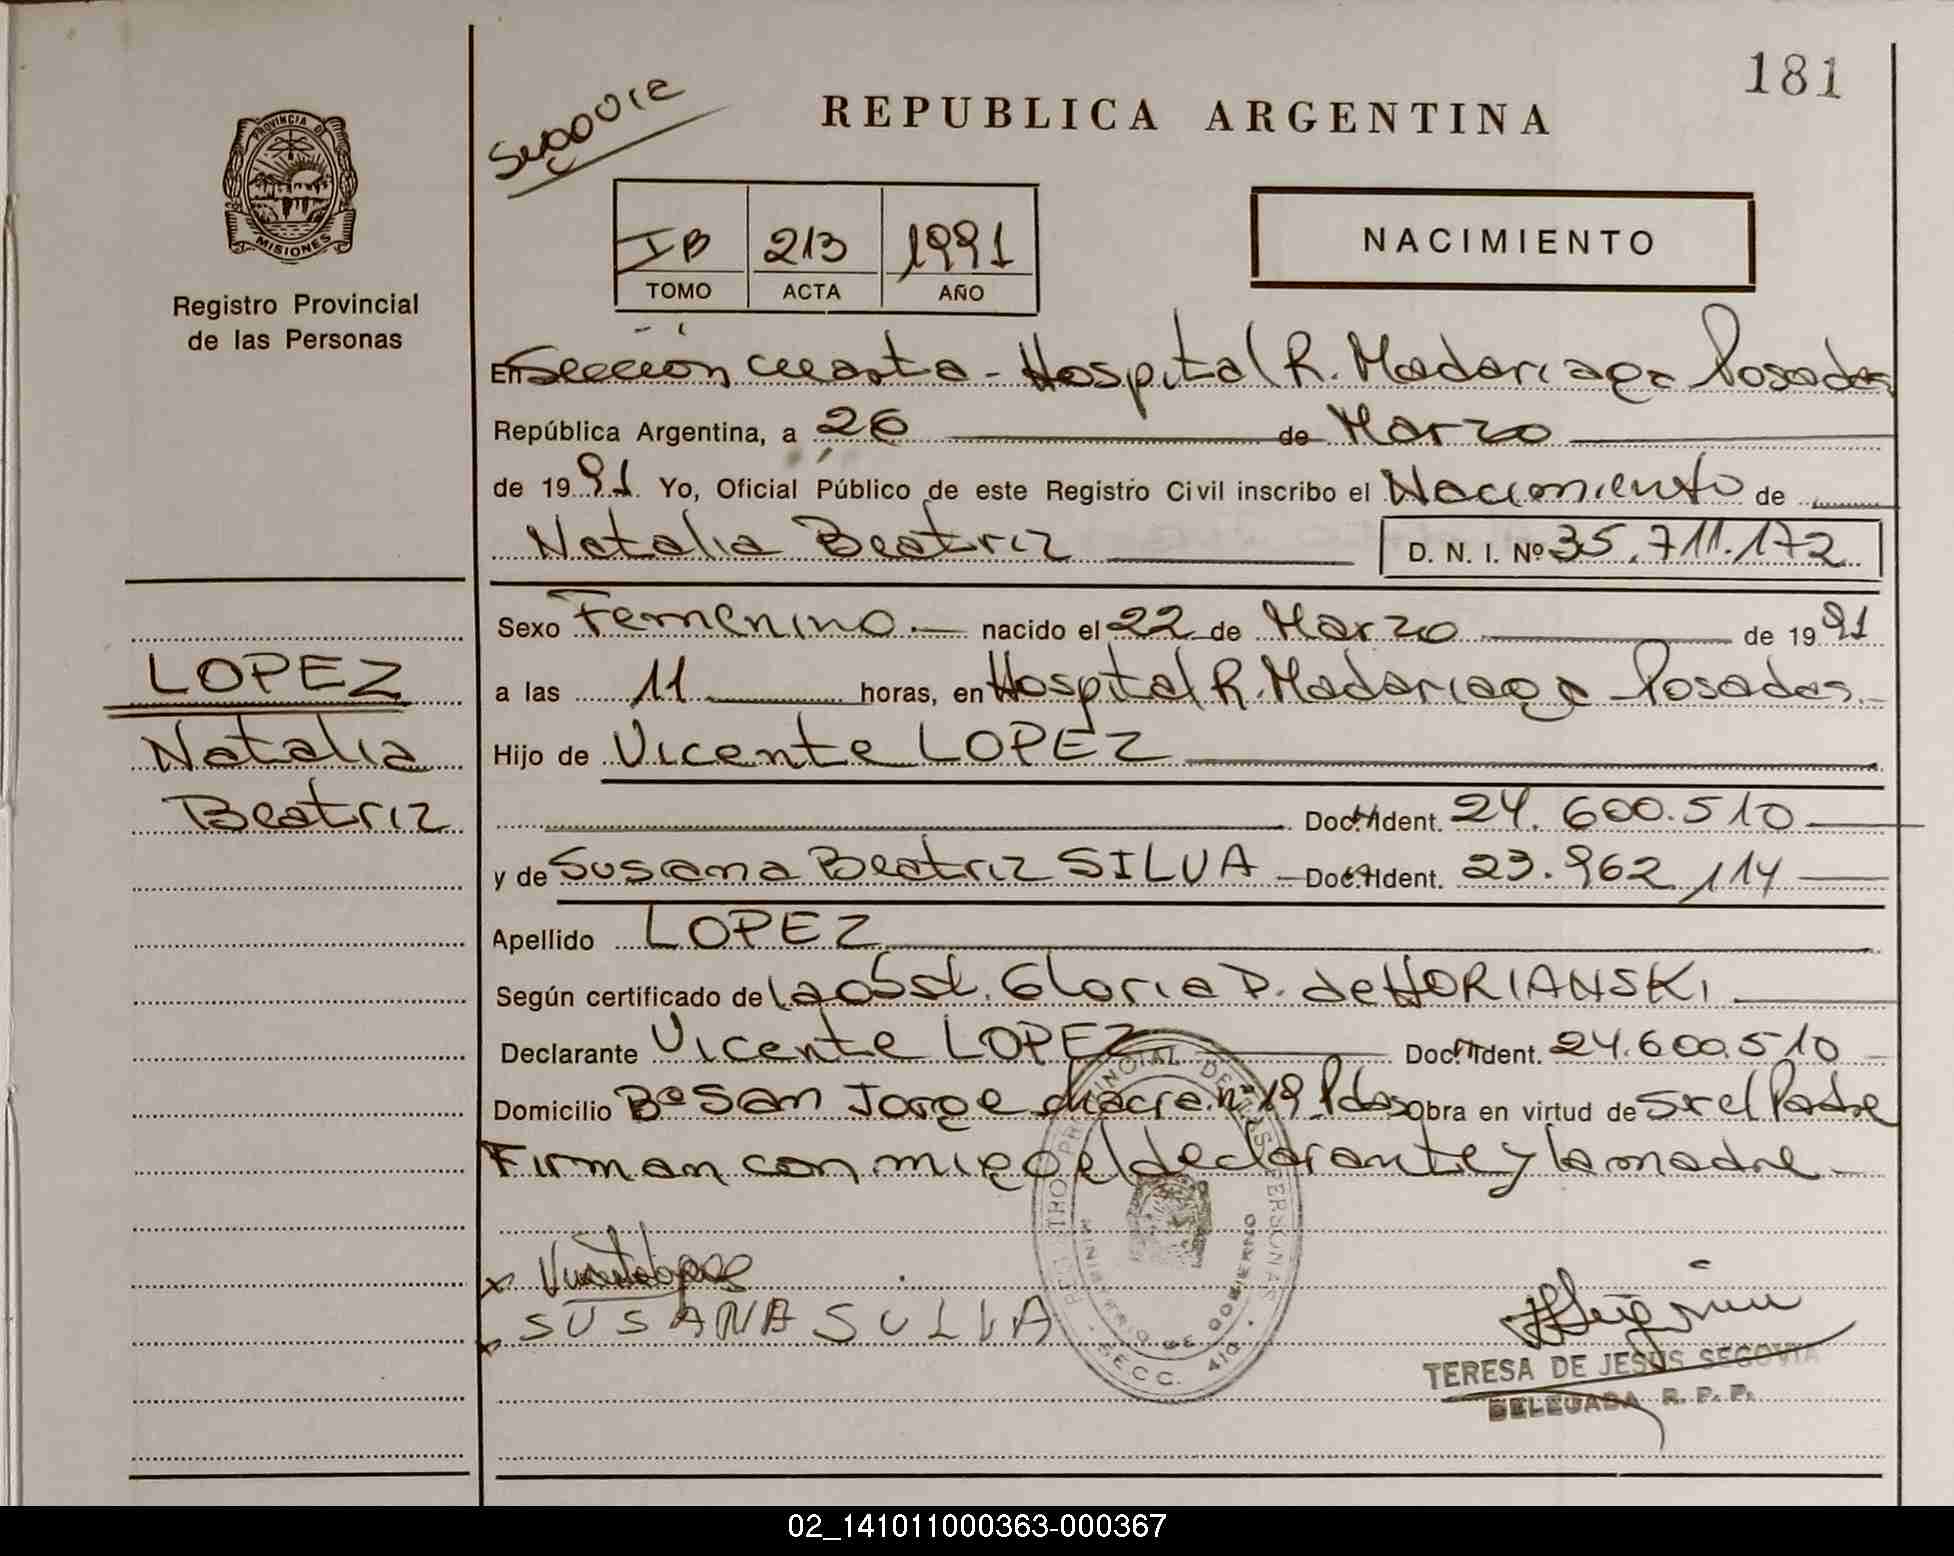 181
Segovia
REPUBLICA ARGENTINA
PROVINCIA D
MISIONES
Registro Provincial
de las Personas
IB 213 1991
TOMO ACTA AÑO
NACIMIENTO
En Sección cuarta - Hospital R. Madariaga Posadas
República Argentina, a 26 de Marzo
de 1991. Yo, Oficial Público de este Registro Civil inscribo el Nacimiento de
Natalia Beatriz D. N. I. Nº 35.711.172
Sexo Femenino.— nacido el 22 de Marzo de 1991
a las 11 horas, en Hospital R. Madariaga Posadas.-
Hijo de Vicente LOPEZ
Doc. Ident. 24.600.510
y de Susana Beatriz SILVA - Doc. Ident. 23.962.114
Apellido LOPEZ
Según certificado de la obst. Gloria P. de HORIANSKI
Declarante Vicente LOPEZ Doc. Ident. 24.600.510
Domicilio Bº San Jorge chacra nº 19 Pdas obra en virtud de ser el Padre
Firman con migo el declarante y la madre -
LOPEZ
Natalia
Beatriz
x Vicente Lopez
x SUSANA SULLVA
REGISTRO PROVINCIAL DE LAS PERSONAS
MINISTERIO DE GOBIERNO
SECC. 4ta
TERESA DE JESUS SEGOVIA
DELEGADA R. P. P.
02_141011000363-000367